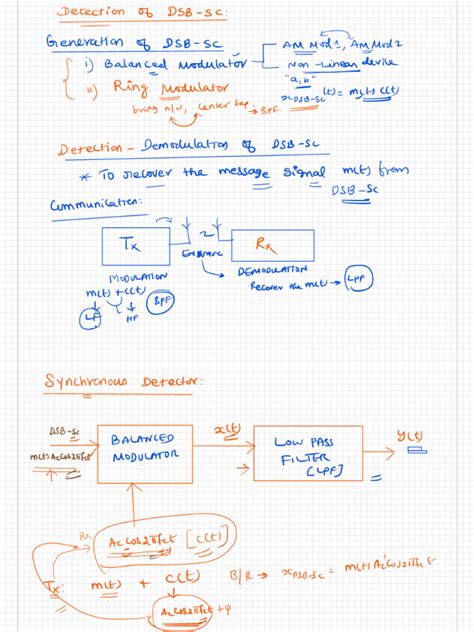 Detection of DSB-SC:
Generation of DSB-SC
i) Balanced Modulator
AM Mod 1, AM Mod 2
Non-Linear device
"a, b"
ii) Ring Modulator
xDSB-SC(t) = m(t) c(t)
bring n/w, center tap, BPF.
Detection - Demodulation of DSB-SC
* To recover the message signal m(t) from
DSB-SC
Communication:
Tx
Rx
MODULATION
DEMODULATION
m(t) + c(t)
Recover the m(t) → LPF
BPF
LF
HF
Synchronous Detector:
DSB-SC
m(t) Ac Cos2πfct
BALANCED
MODULATOR
x(t)
LOW PASS
FILTER
[LPF]
y(t)
Rx
Ac Cos2πfct [c(t)]
Tx: m(t) + c(t)
B/R → xDSB-SC = m(t) Ac Cos2πfct
Ac Cos2πfct + φ